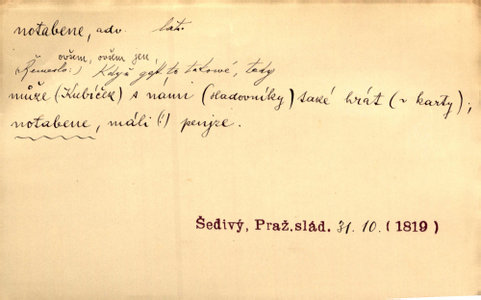 notabene, adv. lat.
ovšem, ovšem jen
(Řemeslo:) Když gest to takové, tedy
může (Kubíček) s nami (sladovníky) také hrát (v karty);
notabene, máli (!) penjze.
Šedivý, Praž.slád. 31. 10. (1819)